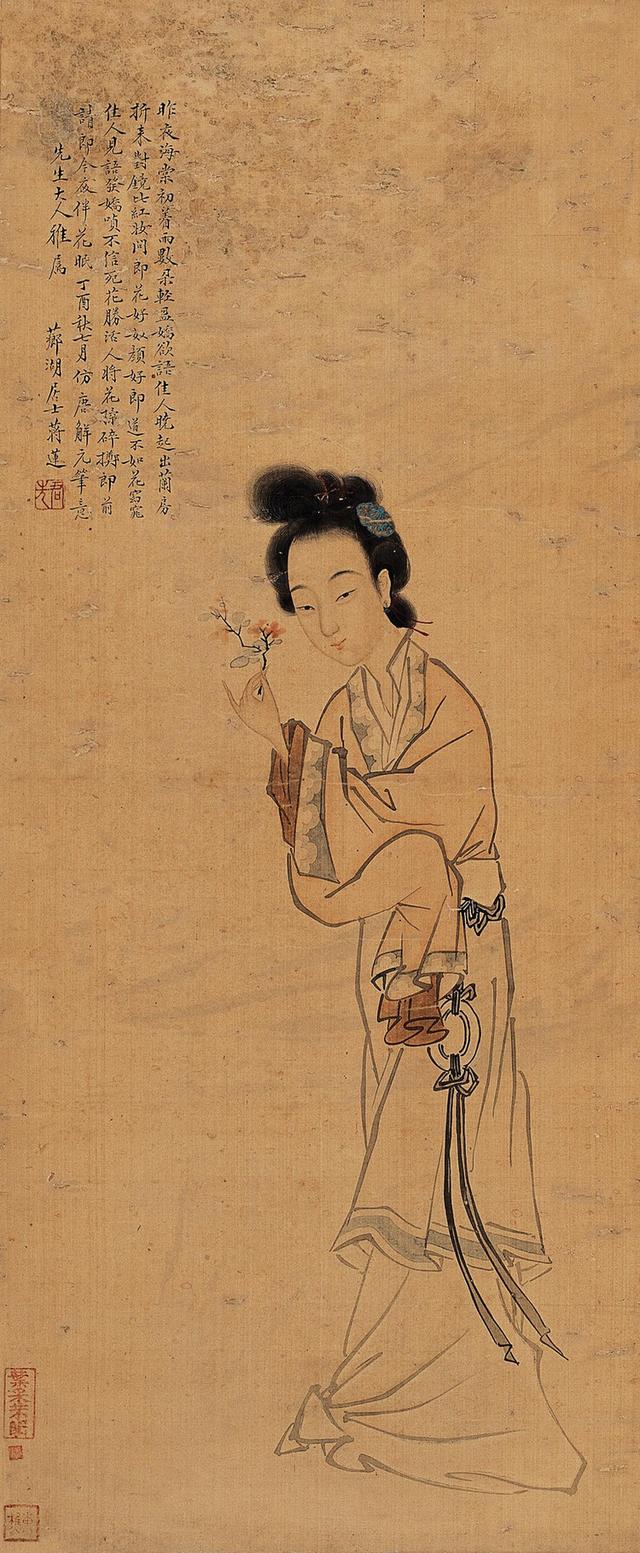 昨夜海棠初着雨數朵輕盈嬌欲語佳人晩起出蘭房
折來對鏡比紅妝問郎花好奴顏好郎道不如花窈窕
佳人見語發嬌嗔不信死花勝活人將花揉碎擲郎前
請郎今夜伴花眠丁酉秋七月仿唐解元筆意
先生大人雅屬
薌湖居士蔣蓮